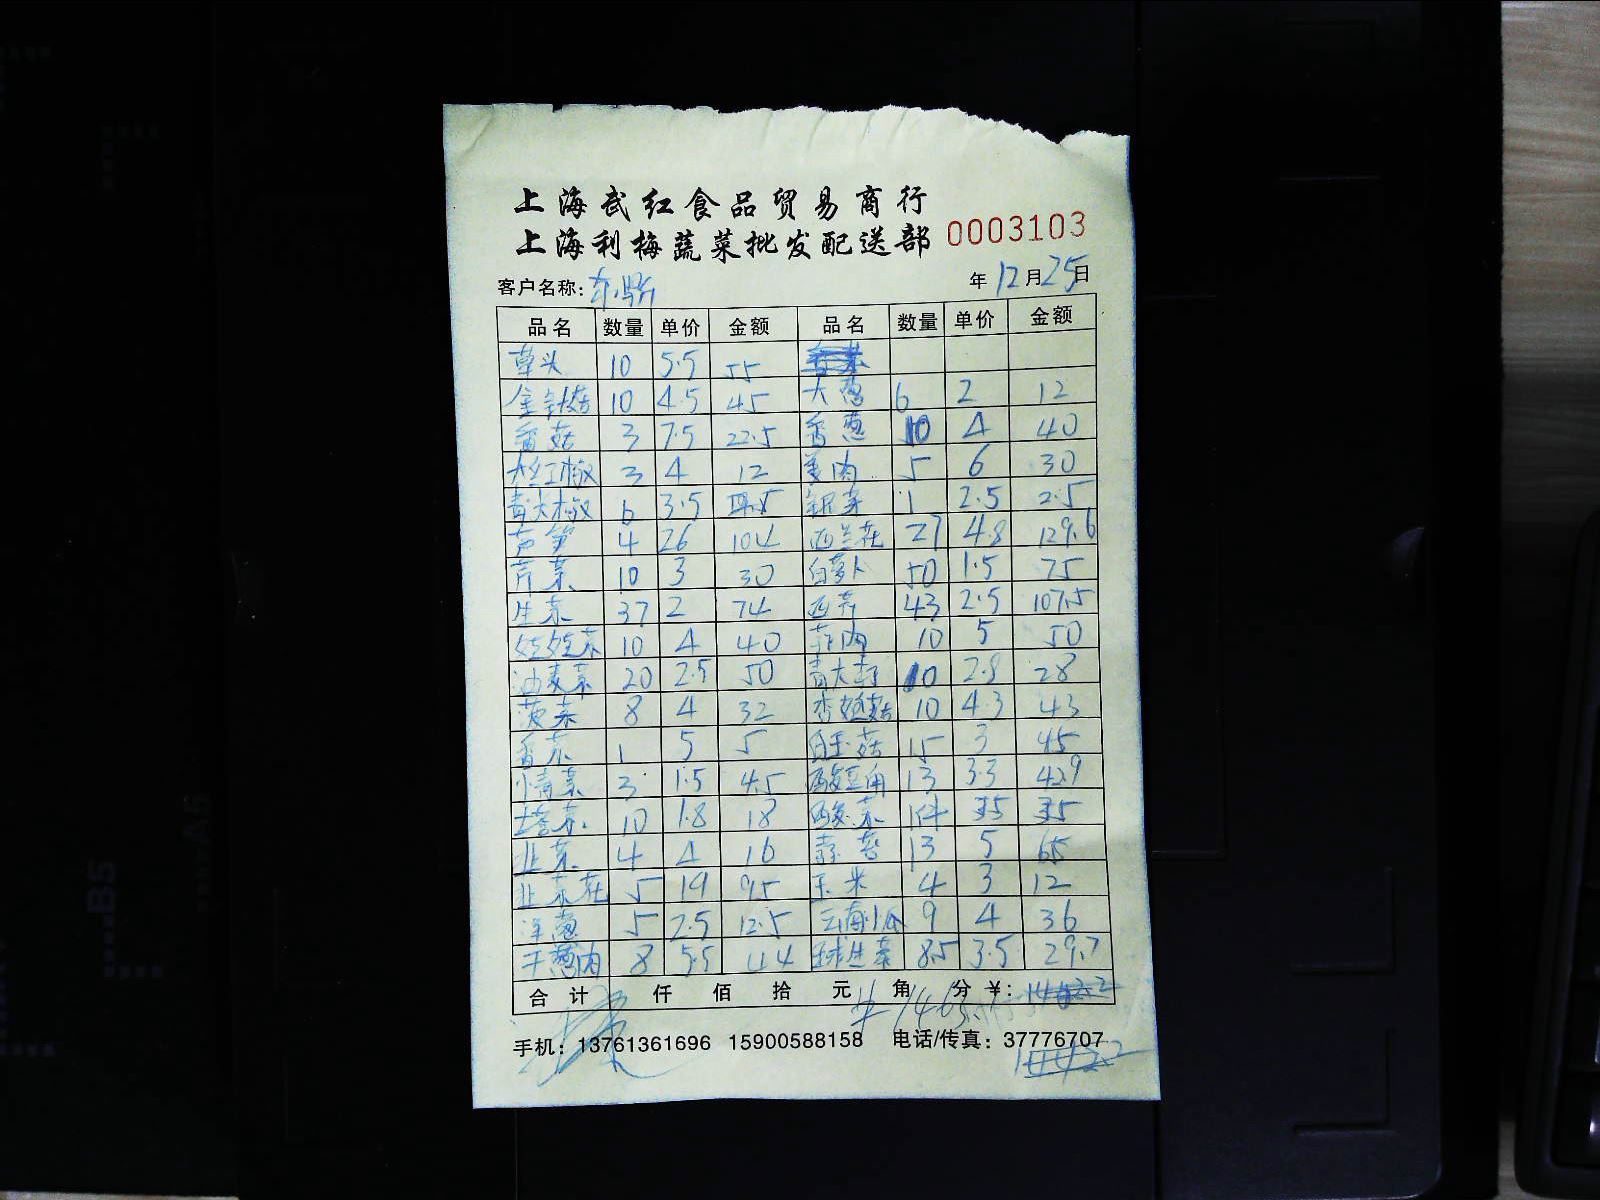 上海武红食品贸易商行
上海利梅蔬菜批发配送部 0003103
客户名称: 年 12 月 25 日
品名 数量 单价 金额 品名 数量 单价 金额
草头 10 5.5 55
金针菇 10 4.5 45 大葱 6 2 12
香菇 3 7.5 22.5 香葱 10 4 40
大红椒 3 4 12 姜肉 5 6 30
青大椒 6 3.5 银芽 1 2.5 2.5
芦笋 4 26 104 西兰花 27 4.8 129.6
芹菜 10 3 30 白萝卜 50 1.5 75
生菜 37 2 74 西芹 43 2.5 107.5
娃娃菜 10 4 40 10 5 50
油麦菜 20 2.5 50 10 2.8 28
菠菜 8 4 32 杏鲍菇 10 4.3 43
香菜 1 5 5 白玉菇 15 3 45
小青菜 3 1.5 4.5 酸豆角 13 3.3 42.9
塔菜 10 1.8 18 酸菜
韭菜 4 4 16 蒜苔 13 5 65
韭菜花 5 19 95 玉米 4 3 12
洋葱 5 2.5 12.5 云南小瓜 9 4 36
干葱肉 8 5.5 44 球生菜 8.5 3.5 29.7
合计 仟 佰 拾 元 角 分 ￥:
手机: 13761361696 15900588158 电话/传真: 37776707